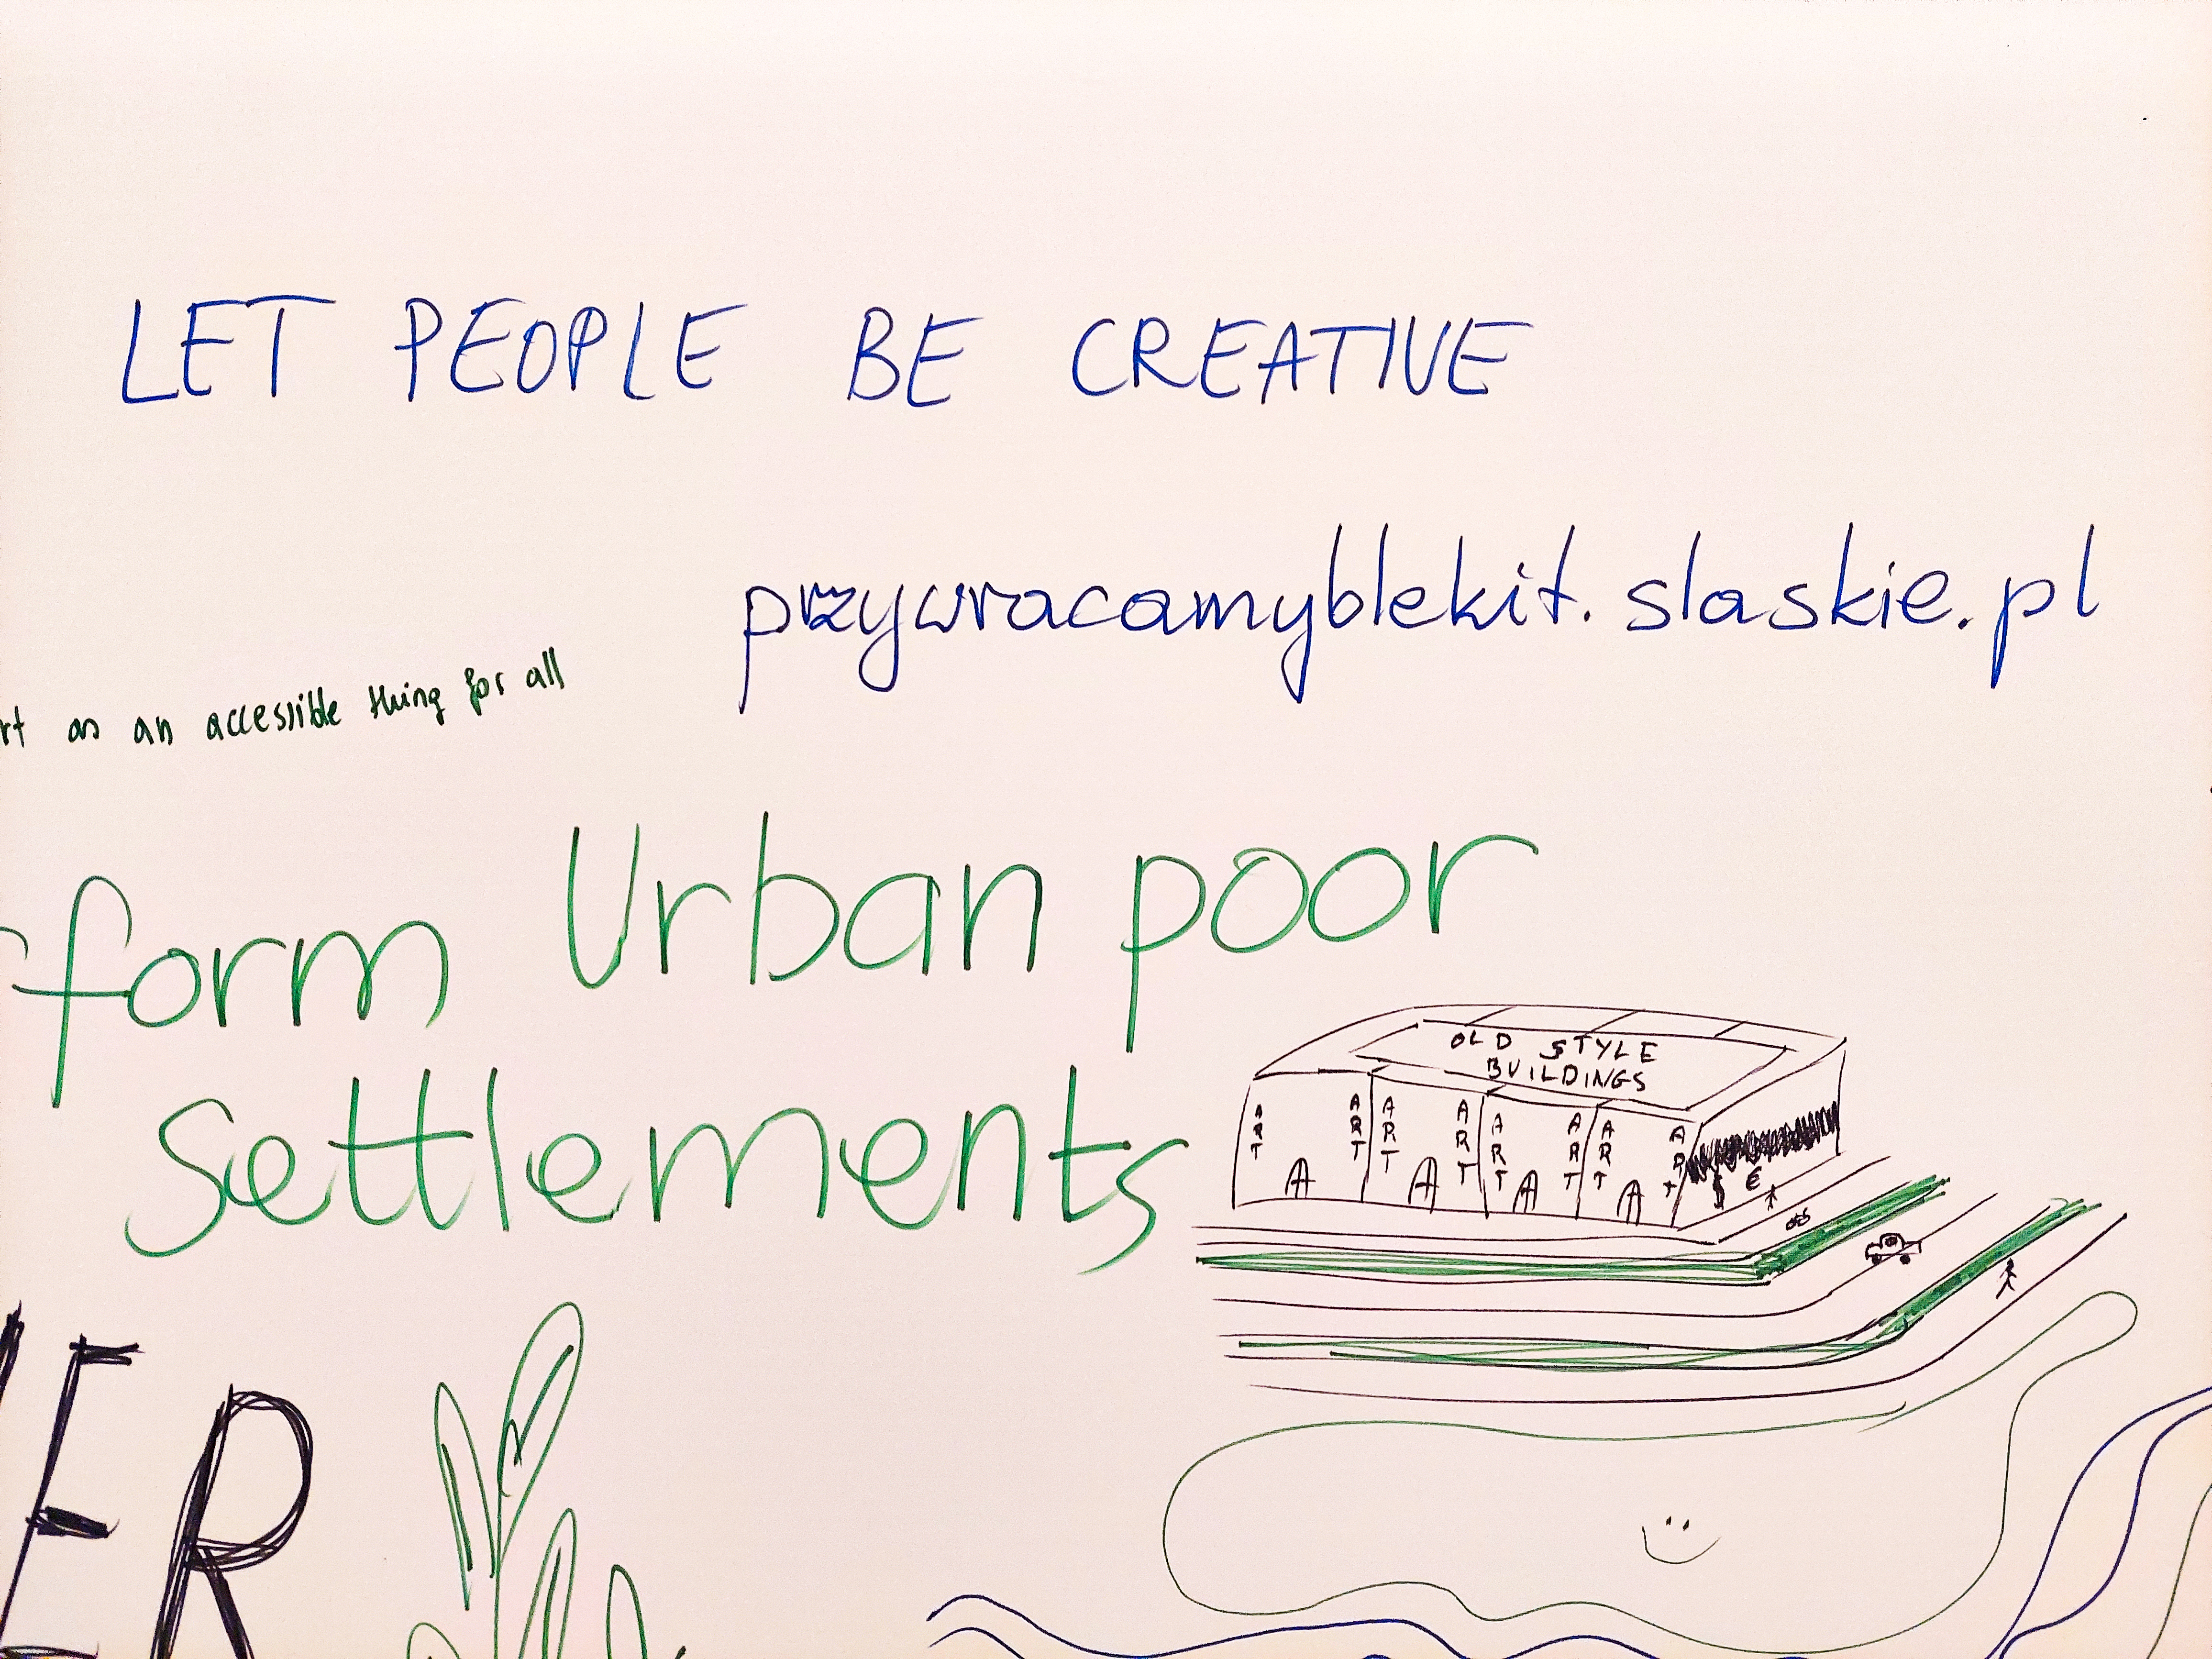 LET PEOPLE BE CREATIVE
przywracamyblekit.slaskie.pl
rt as an accessible thing for all
form Urban poor
settlements
OLD STYLE
BUILDINGS
ART ART ART ART ART ART ART ART
$ €
ER